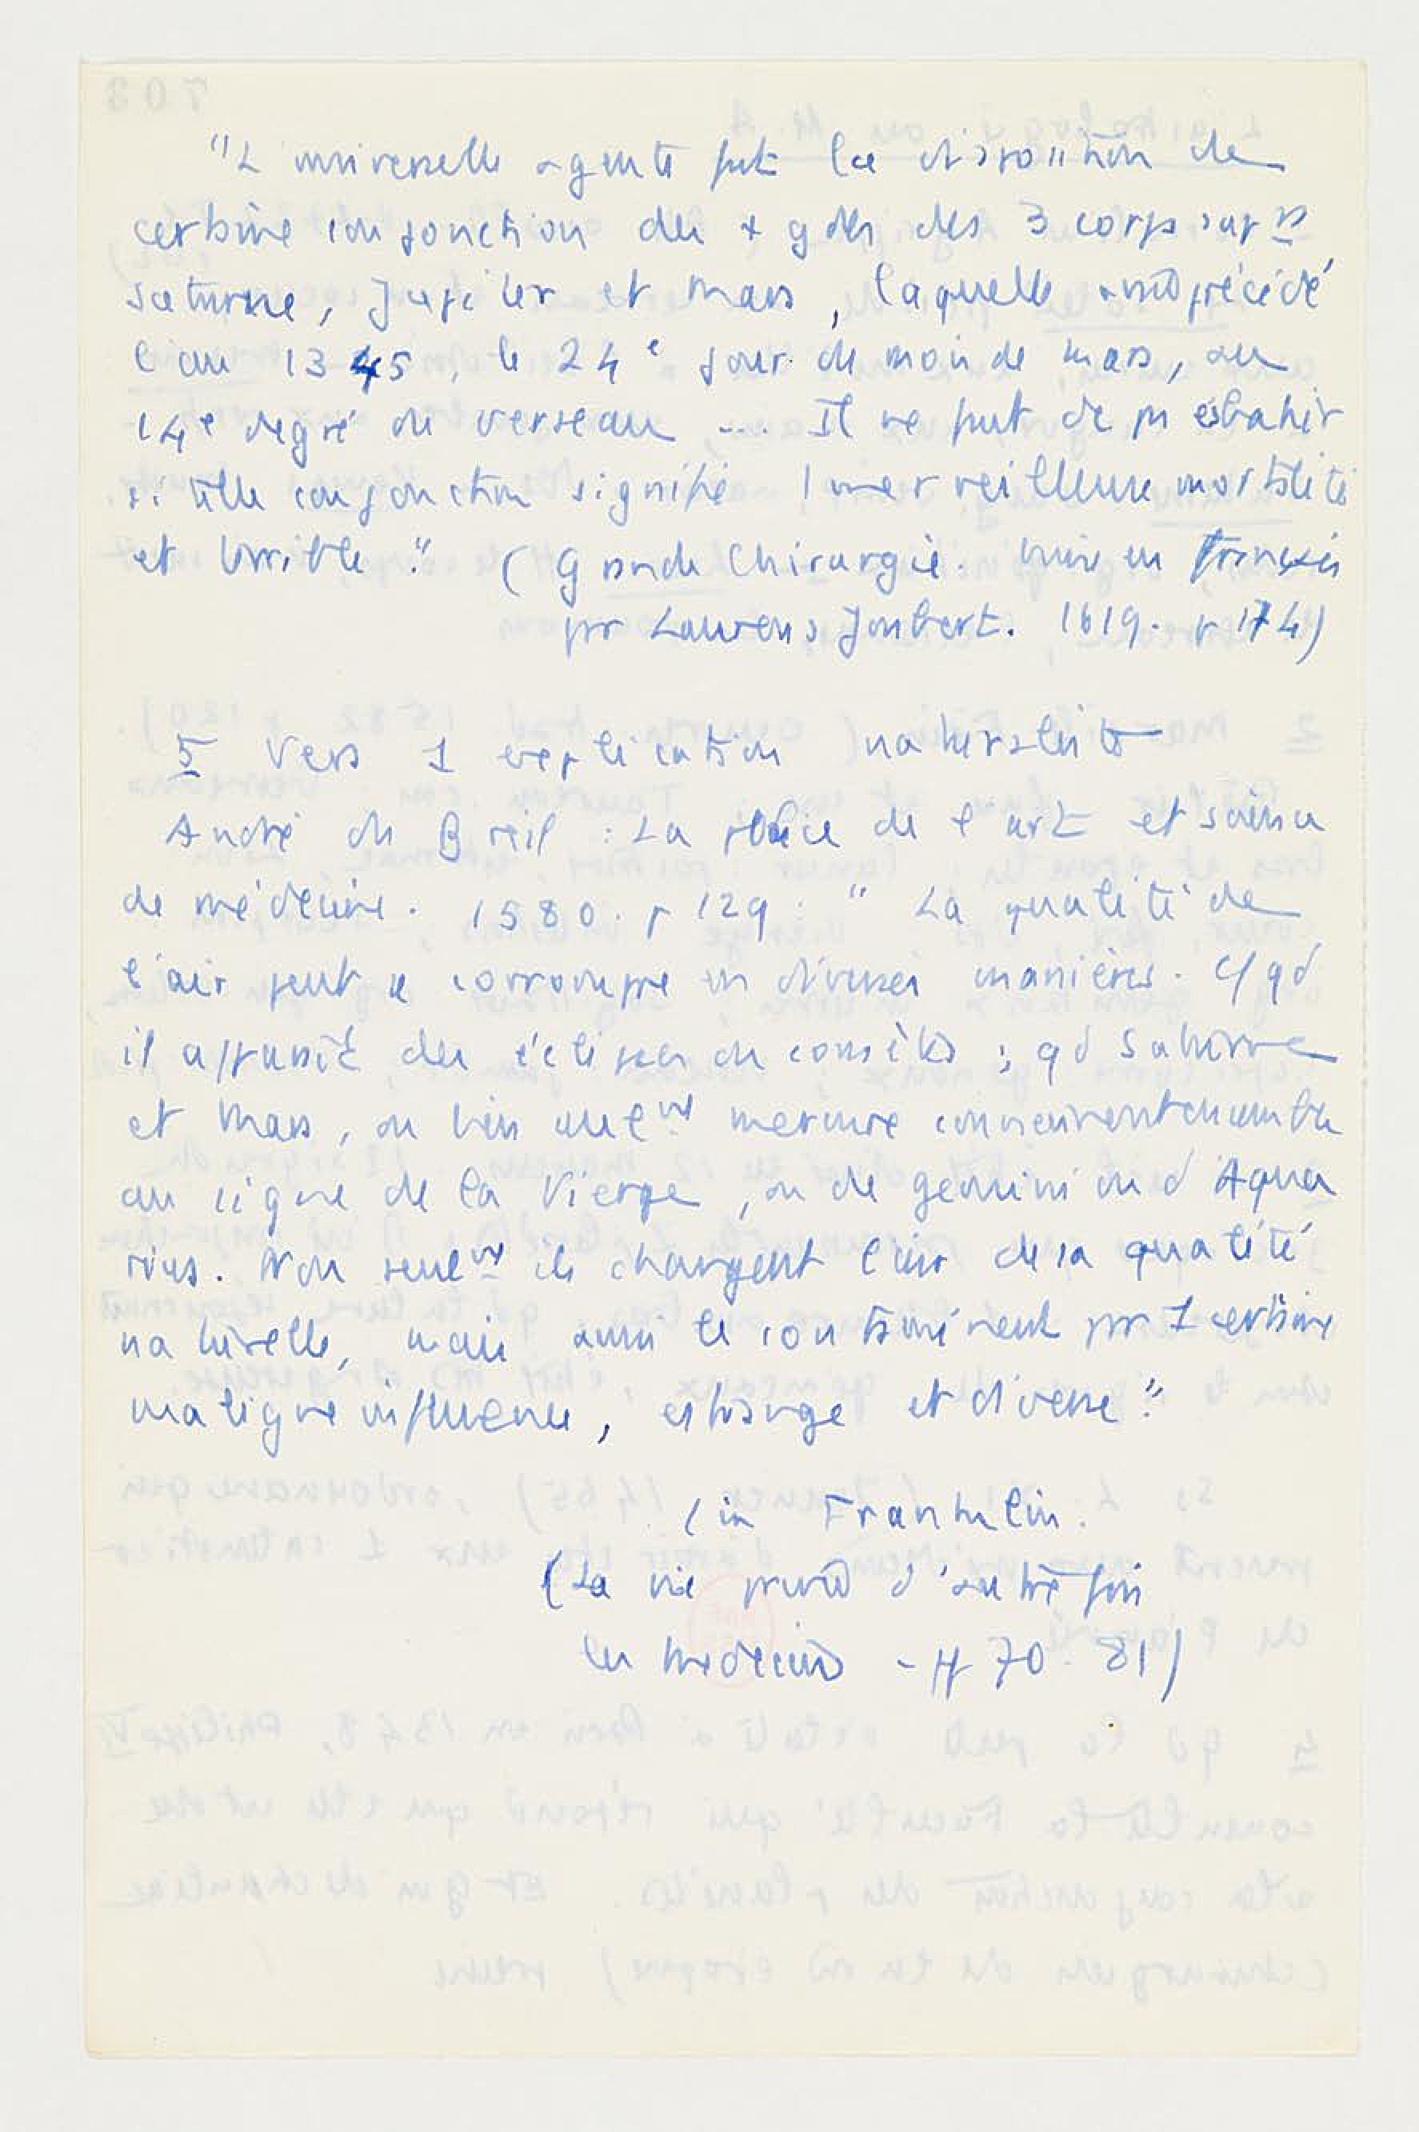 "L'universelle agente fut la disposition de
certaine conjonction des + gdes des 3 corps suprs
Saturne, Jupiter et Mars, laquelle avait précédé
l'an 1345, le 24e jour du mois de mars, au
14e degré du verseau .... Il ne faut de pas esbahir
si telle conjonction signifie 1 merveilleuse mortalité
et horrible." (Grande Chirurgie. mise en français
par Laurens Joubert. 1619. p 174)
5 Vers 1 explication naturaliste
André du Breil : La police de l'art et science
de médecine. 1580. p 129. " La qualité de
l'air peut se corrompre en diverses manières. C/ qd
il apparaît des éclipses du comètes ; qd Saturne
et Mars, ou bien avec mercure conviennent ensemble
au signe de la Vierge, ou de gemini ou d'Aqua
rius. Non seulnt ils changent l'air de sa qualité
naturelle, mais aussi le contaminent par 1 certaine
maligne influence, estrange et diverse."
(in Franklin.
(La vie privée d'autrefois
les médecins - pp 70-81)